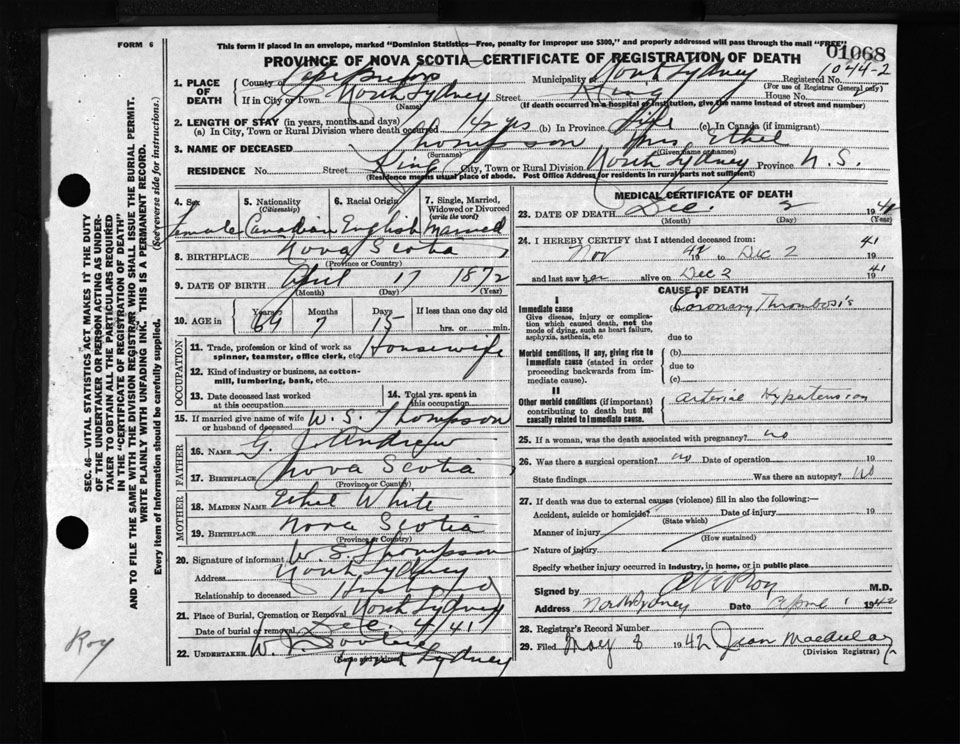 FORM 6
This form if placed in an envelope, marked "Dominion Statistics—Free, penalty for improper use $300," and properly addressed will pass through the mail "FREE"
01068
PROVINCE OF NOVA SCOTIA—CERTIFICATE OF REGISTRATION OF DEATH
1044-2
1. PLACE OF DEATH
County Cape Breton Municipality North Sydney Registered No.
(For use of Registrar General only)
If in City or Town North Sydney Street King House No.
(Name) (If death occurred in a hospital or institution, give the name instead of street and number)
2. LENGTH OF STAY (in years, months and days)
(a) In City, Town or Rural Division where death occurred 42 yrs (b) In Province Life (c) In Canada (if immigrant)
3. NAME OF DECEASED Thompson Mrs Ethel
(Surname) (Given name or names)
RESIDENCE No. Street King City, Town or Rural Division North Sydney Province N.S.
(Residence means usual place of abode. Post Office Address for residents in rural parts not sufficient)
4. Sex Female
5. Nationality (Citizenship) Canadian
6. Racial Origin English
7. Single, Married, Widowed or Divorced (write the word) Married
8. BIRTHPLACE Nova Scotia
(Province or Country)
9. DATE OF BIRTH April 17 1872
(Month) (Day) (Year)
10. AGE in Years 69 Months 7 Days 15 If less than one day old
hrs. or min.
OCCUPATION
11. Trade, profession or kind of work as spinner, teamster, office clerk, etc. Housewife
12. Kind of industry or business, as cotton-mill, lumbering, bank, etc.
13. Date deceased last worked at this occupation
14. Total yrs. spent in this occupation
15. If married give name of wife or husband of deceased W. S. Thompson
FATHER
16. NAME G. J. Andrew
17. BIRTHPLACE Nova Scotia
(Province or Country)
MOTHER
18. MAIDEN NAME Ethel White
19. BIRTHPLACE Nova Scotia
(Province or Country)
20. Signature of informant W. S. Thompson
Address North Sydney
Relationship to deceased Husband
21. Place of Burial, Cremation or Removal North Sydney
Date of burial or removal Dec. 4/41
22. UNDERTAKER W.
(Name and address) North Sydney
MEDICAL CERTIFICATE OF DEATH
23. DATE OF DEATH Dec. 2 19
(Month) (Day) (Year)
24. I HEREBY CERTIFY that I attended deceased from:
Nov 19 to Dec 2 19 41
and last saw her alive on Dec 2 19 41
CAUSE OF DEATH
I
Immediate cause
Give disease, injury or complication which caused death, not the mode of dying, such as heart failure, asphyxia, asthenia, etc
Coronary Thrombosis
due to
Morbid conditions, if any, giving rise to immediate cause (stated in order proceeding backwards from immediate cause).
(b)
due to
(c)
II
Other morbid conditions (if important) contributing to death but not causally related to immediate cause.
Arterial Hypertension
25. If a woman, was the death associated with pregnancy? no
26. Was there a surgical operation? no Date of operation 19
State findings Was there an autopsy? no
27. If death was due to external causes (violence) fill in also the following:—
Accident, suicide or homicide? Date of injury 19
(State which)
Manner of injury
(How sustained)
Nature of injury
Specify whether injury occurred in industry, in home, or in public place
Signed by Roy M.D.
Address North Sydney Date April 1 1942
28. Registrar's Record Number
29. Filed May 8 1942 Jean
(Division Registrar)
SEC. 46—VITAL STATISTICS ACT MAKES IT THE DUTY
OF THE UNDERTAKER OR PERSON ACTING AS UNDER-
TAKER TO OBTAIN ALL THE PARTICULARS REQUIRED
IN THE "CERTIFICATE OF REGISTRATION OF DEATH"
AND TO FILE THE SAME WITH THE DIVISION REGISTRAR WHO SHALL ISSUE THE BURIAL PERMIT.
WRITE PLAINLY WITH UNFADING INK. THIS IS A PERMANENT RECORD.
Every item of Information should be carefully supplied. (See reverse side for instructions.)
Roy